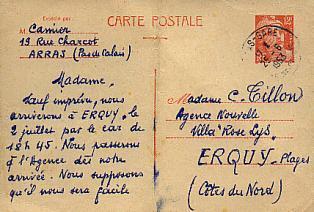 CARTE POSTALE
Expédié par
M. Camier
19 Rue Charcot
ARRAS (Pas de Calais)
12F
Madame,
Sauf imprévu, nous
arriverons à ERQUY, le
2 juillet par le car de
18h45. Nous passerons
à l'Agence dès notre
arrivée. Nous supposons
qu'il nous sera facile
Madame C. Tillon
Agence Nouvelle
Villa "Rose Lys"
ERQUY-Plages
(Côtes du Nord)